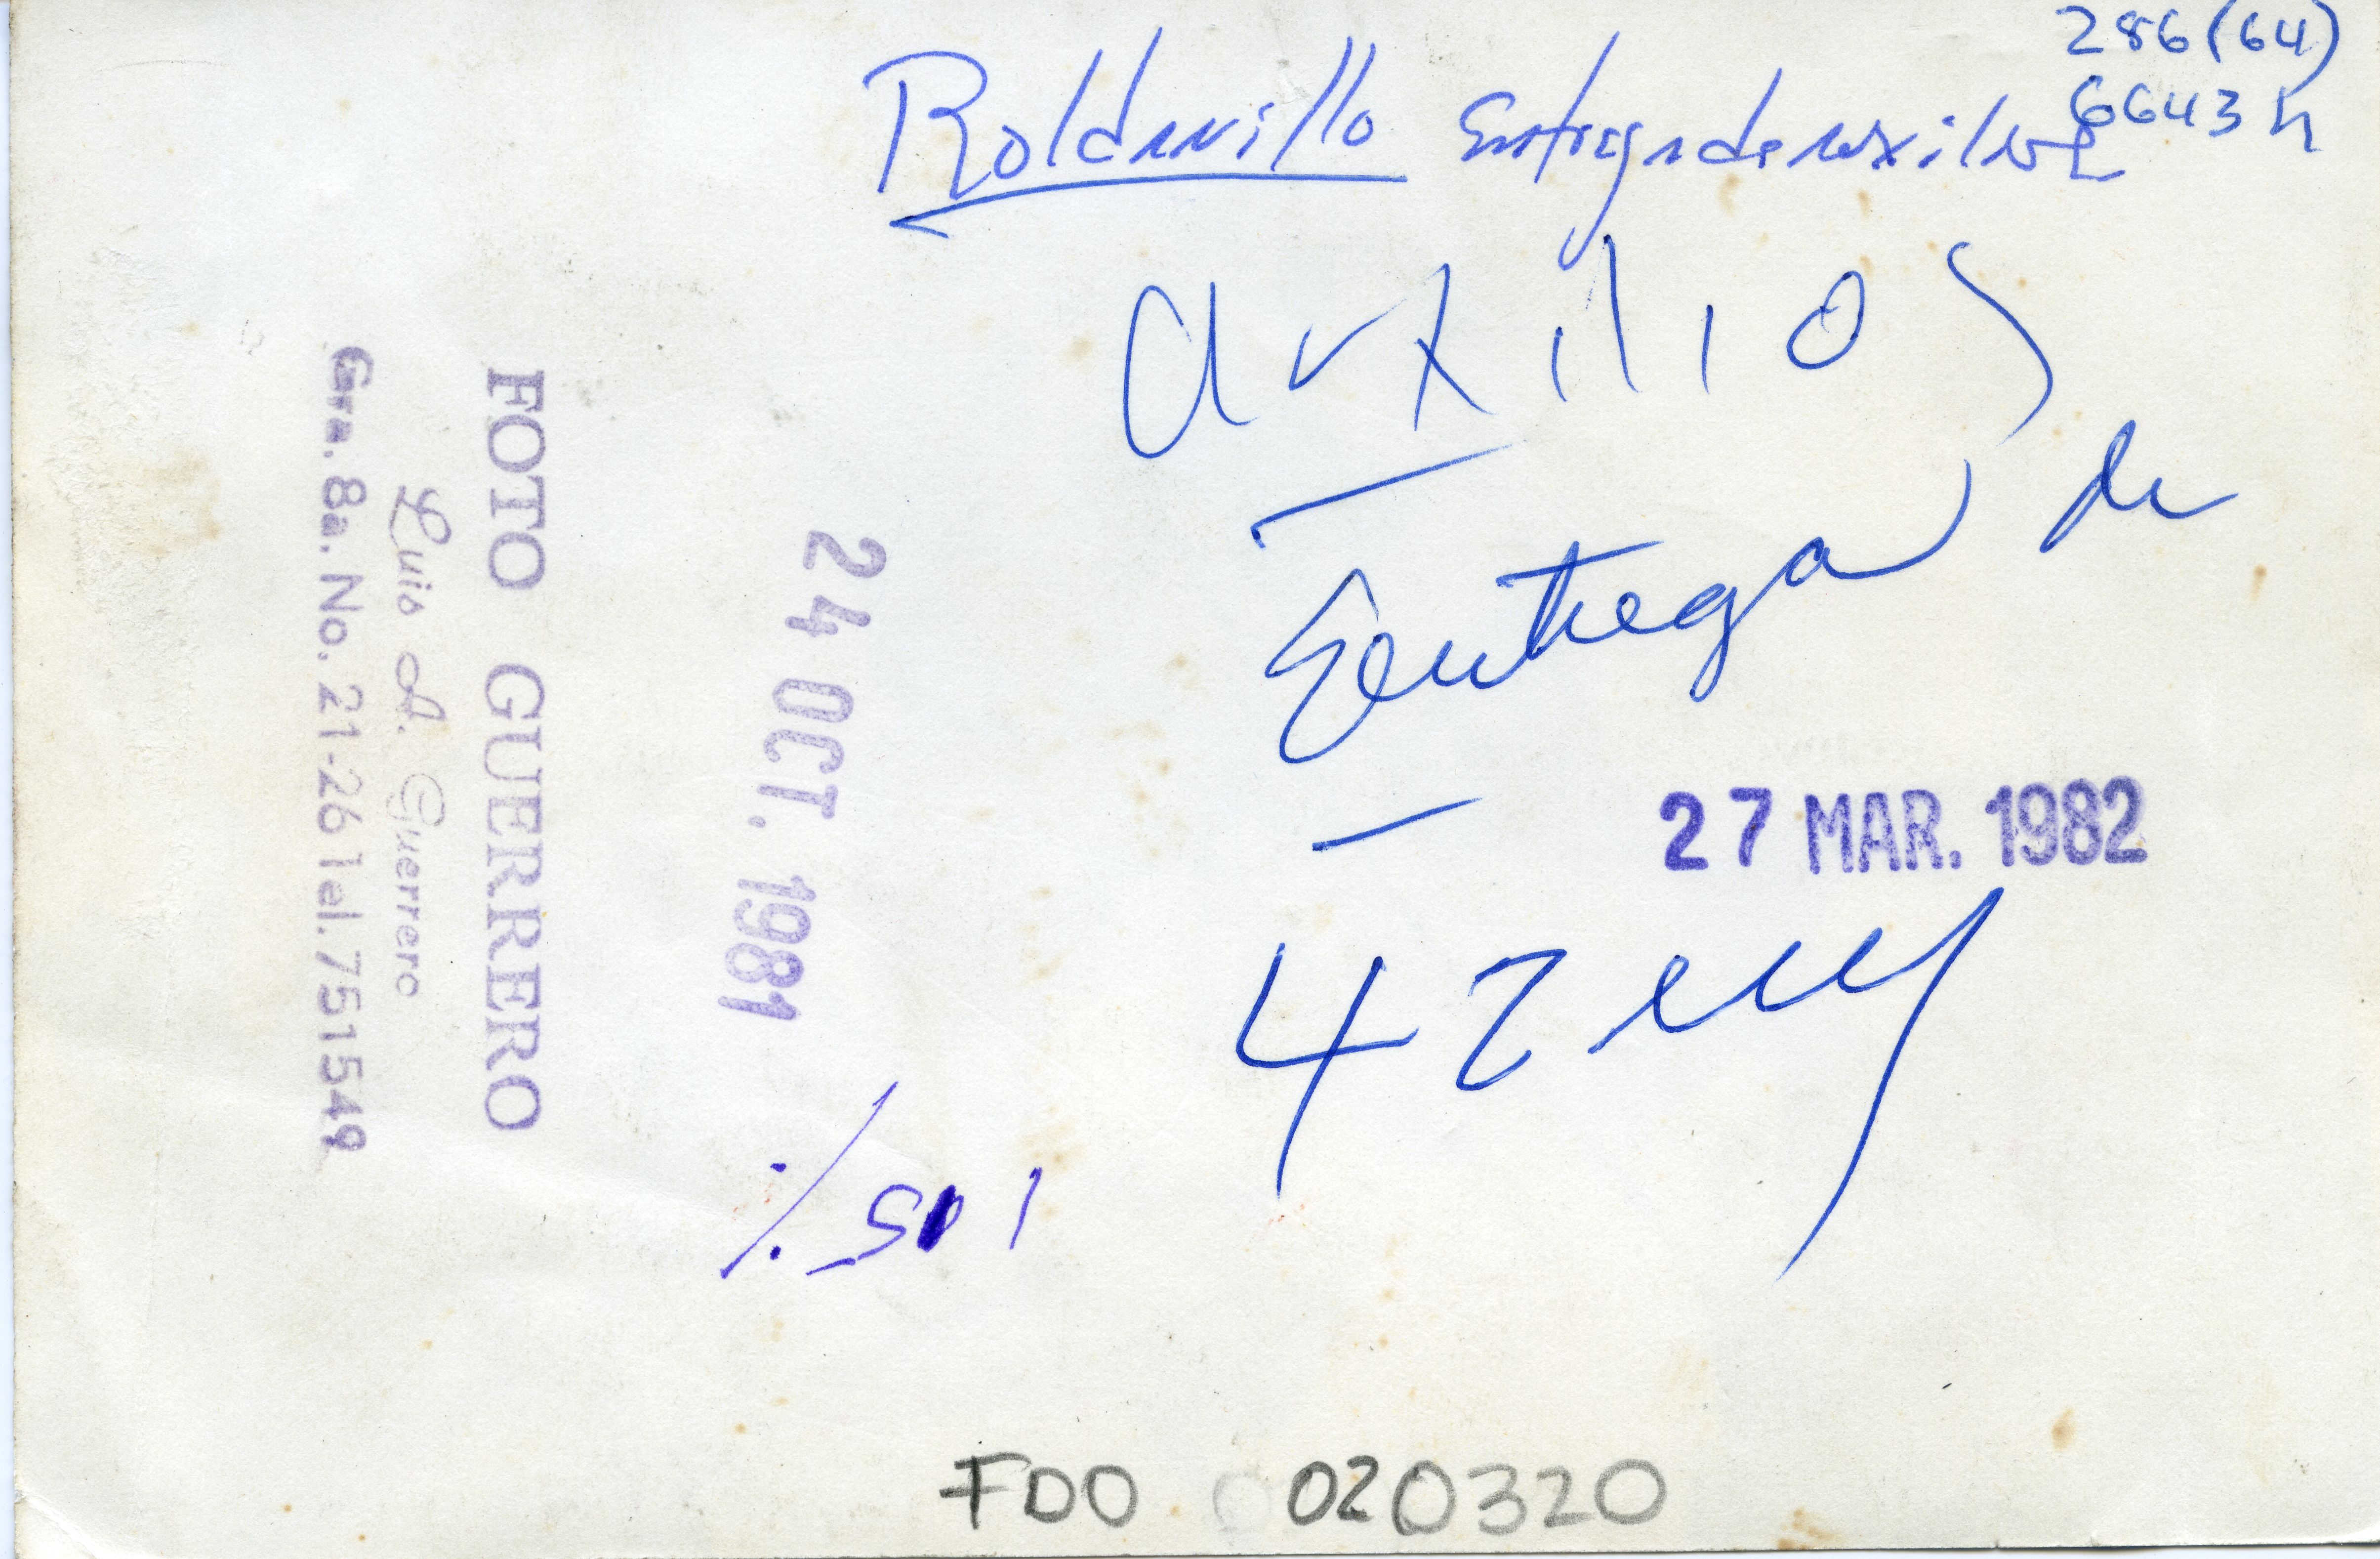 286(64)
6643 h
Roldanillo Entrega de auxilios
auxilios
Entrega de
27 MAR. 1982
FOTO GUERRERO
Luis A. Guerrero
Cra. 8a. No. 21-26 Tel. 751549
24 OCT. 1981
FDO 020320